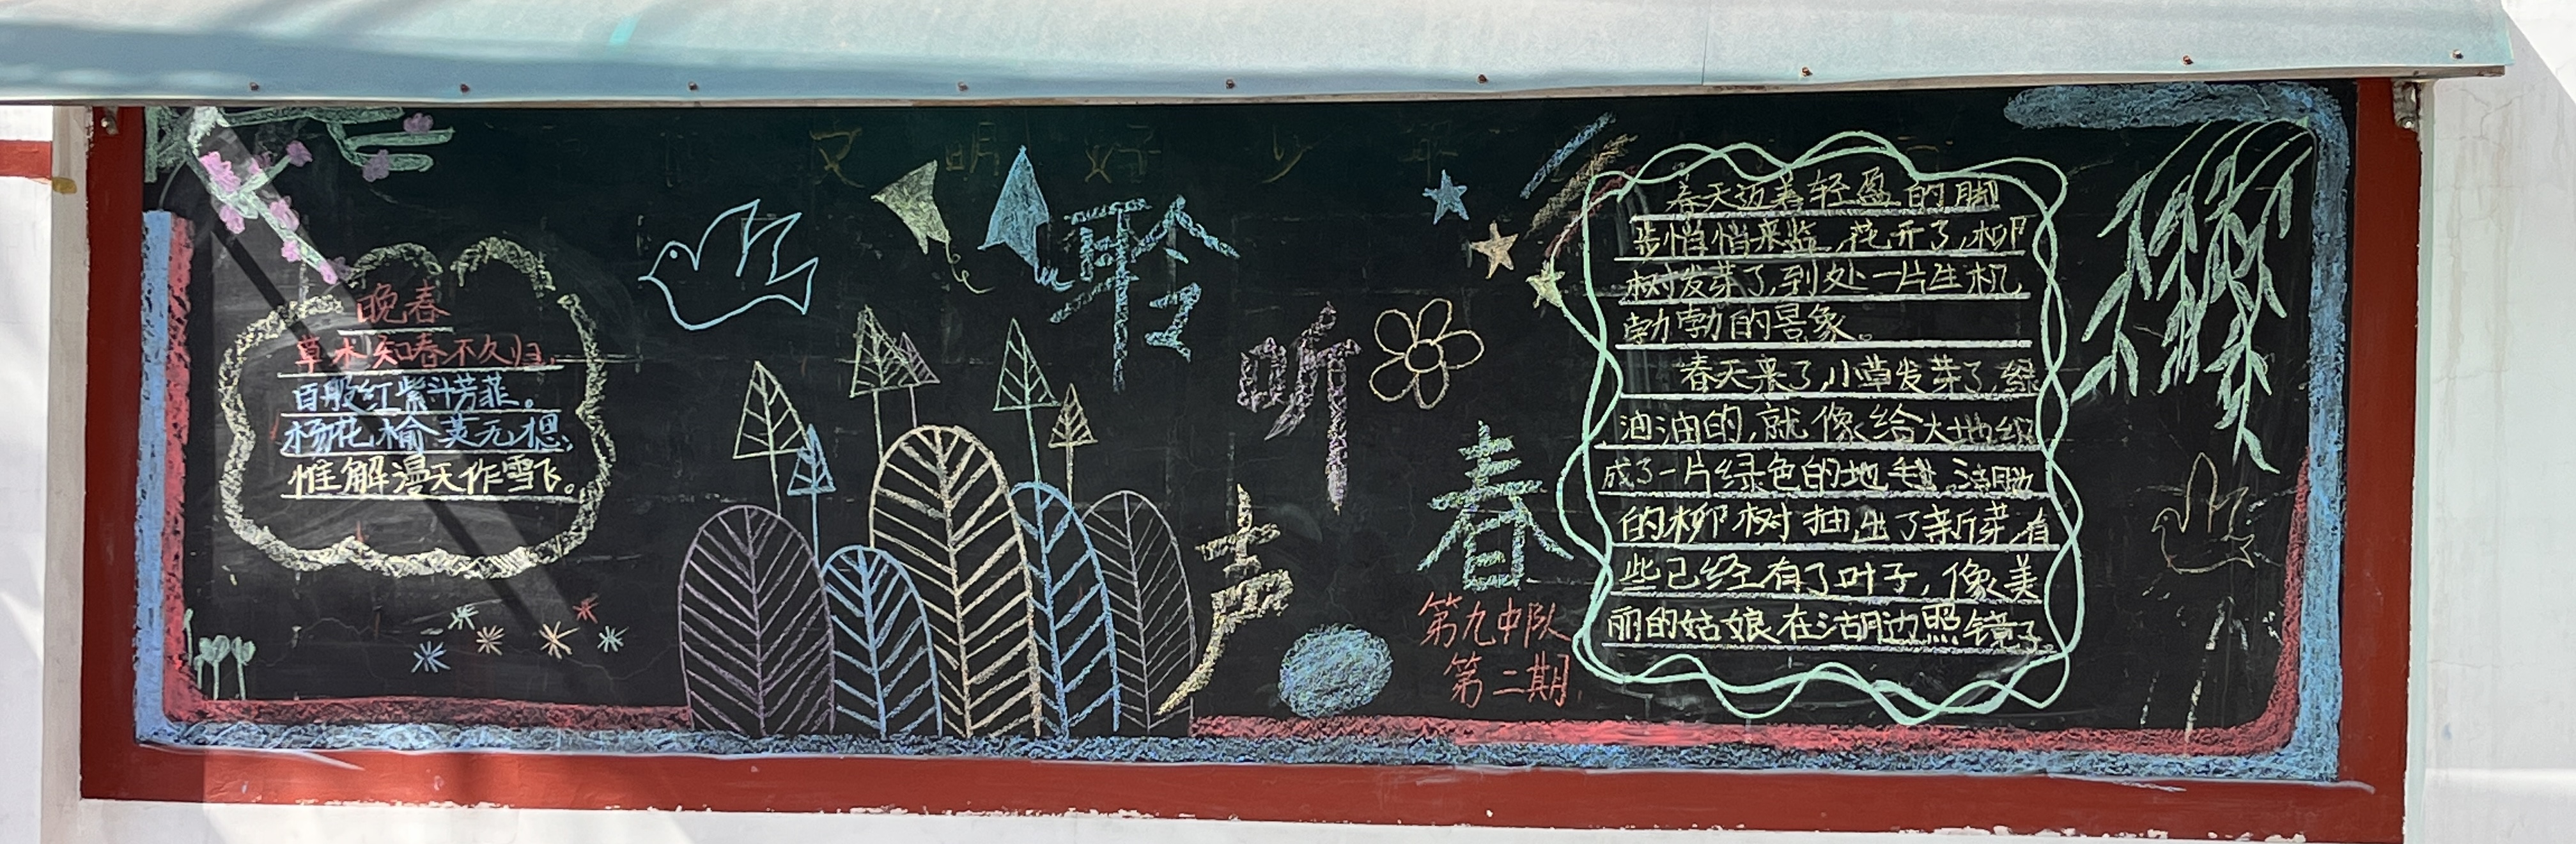 文明好少年
晚春
草木知春不久归,
百般红紫斗芳菲。
杨花榆荚无思,
惟解漫天作雪飞。
聆听春声
第九中队
第二期
春天迈着轻盈的脚
步悄悄来临,花开了,柳
树发芽了,到处一片生机
勃勃的景象。
春天来了,小草发芽了,绿
油油的,就像给大地织
成了一片绿色的地毯,湖边
的柳树抽出了新芽,有
些已经有了叶子,像美
丽的姑娘在湖边照镜子。